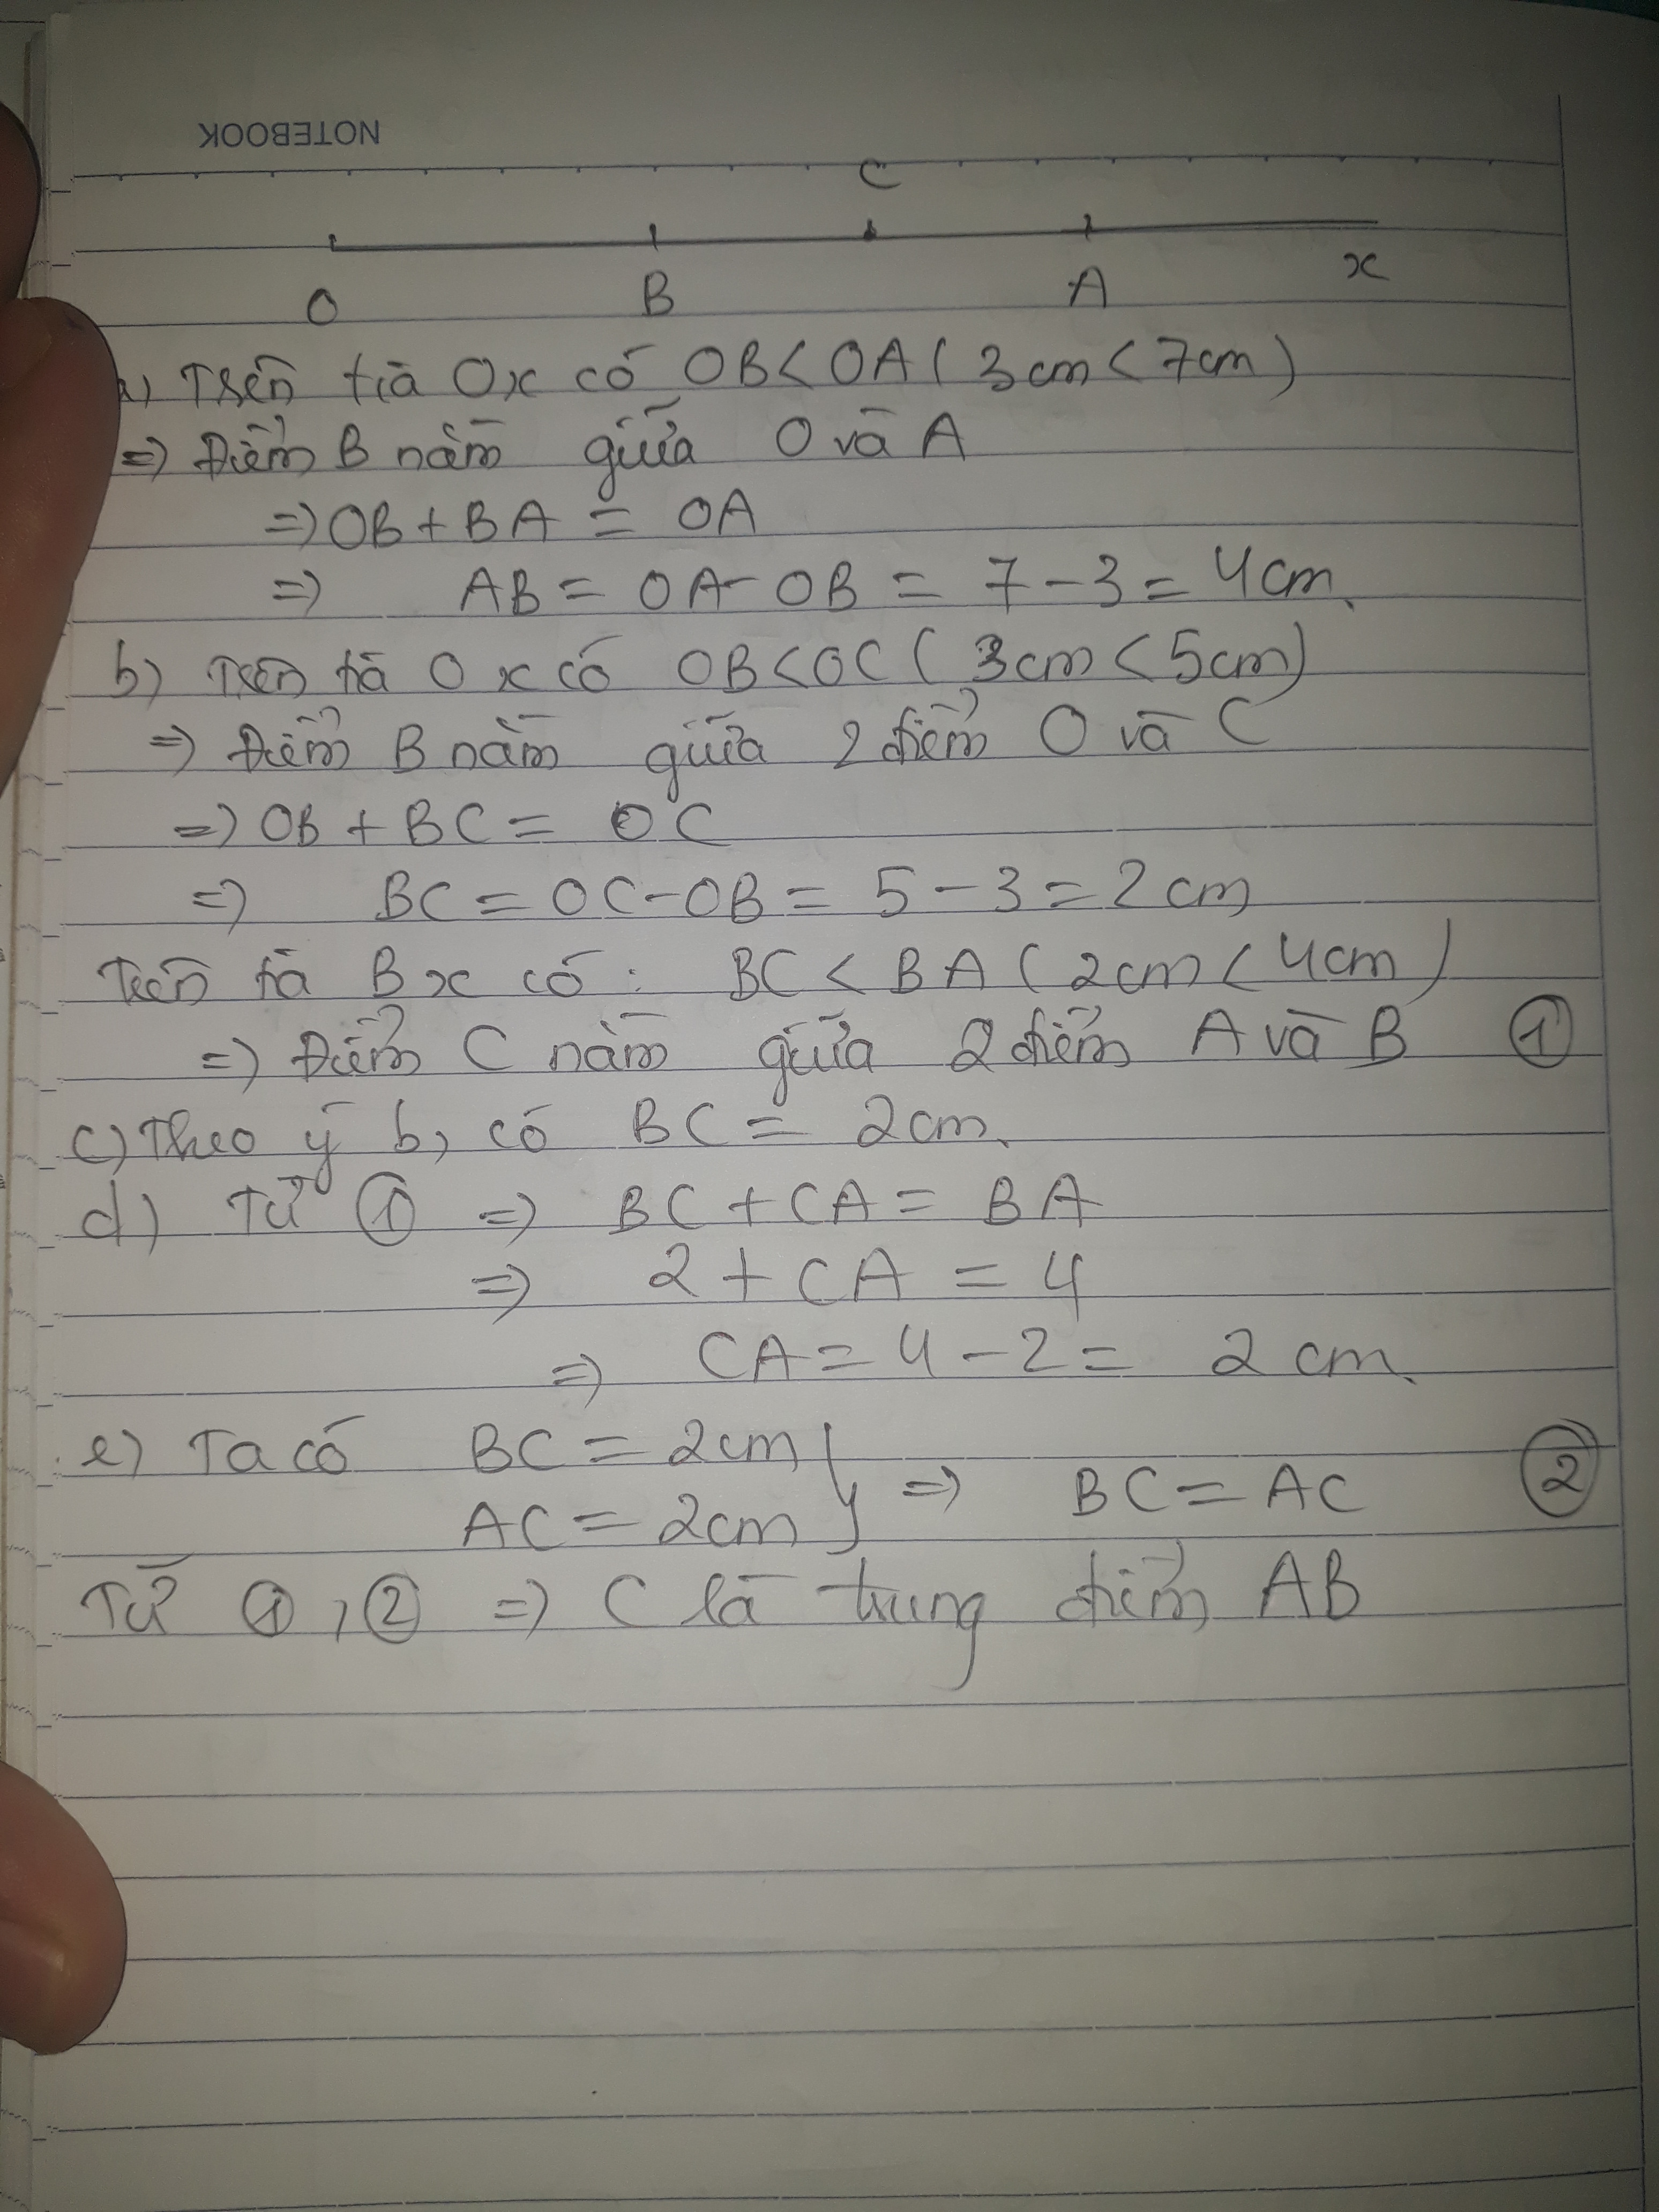 NOTEBOOK
C
O B A x
a) Trên tia Ox có OB < OA ( 3cm < 7cm )
=> Điểm B nằm giữa O và A
=> OB + BA = OA
=> AB = OA - OB = 7 - 3 = 4cm.
b) Trên tia Ox có OB < OC ( 3cm < 5cm )
=> Điểm B nằm giữa 2 điểm O và C
=> OB + BC = OC
=> BC = OC - OB = 5 - 3 = 2 cm
Trên tia Bx có : BC < BA ( 2cm < 4cm )
=> Điểm C nằm giữa 2 điểm A và B ①
c) Theo ý b, có BC = 2cm.
d) Từ ① => BC + CA = BA
=> 2 + CA = 4
=> CA = 4 - 2 = 2 cm.
e) Ta có BC = 2cm
AC = 2cm } => BC = AC ②
Từ ① , ② => C là trung điểm AB